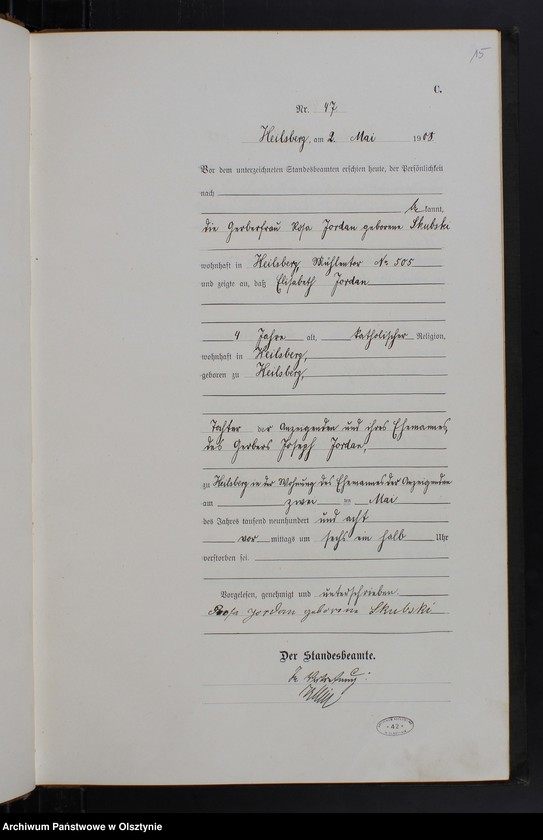 15
C.
Nr. 47
Heilsberg, am 2. Mai 1908.
Vor dem unterzeichneten Standesbeamten erschien heute, der Persönlichkeit
nach
be kannt,
die Gerberfrau Rosa Jordan geborene Skubski
wohnhaft in Heilsberg, Mühlentor No 505
und zeigte an, daß Elisabeth Jordan
4 Jahre alt, katholischer Religion,
wohnhaft in Heilsberg,
geboren zu Heilsberg,
Tochter der Anzeigenden und ihres Ehemannes,
des Gerbers Joseph Jordan,
zu Heilsberg in der Wohnung des Ehemannes der Anzeigenden
am zwei ten Mai
des Jahres tausend neunhundert und acht
vor mittags um sechs ein halb Uhr
verstorben sei.
Vorgelesen, genehmigt und unterschrieben
Rosa Jordan geborene Skubski
Der Standesbeamte.
In Vertretung:
42
Archiwum Państwowe w Olsztynie